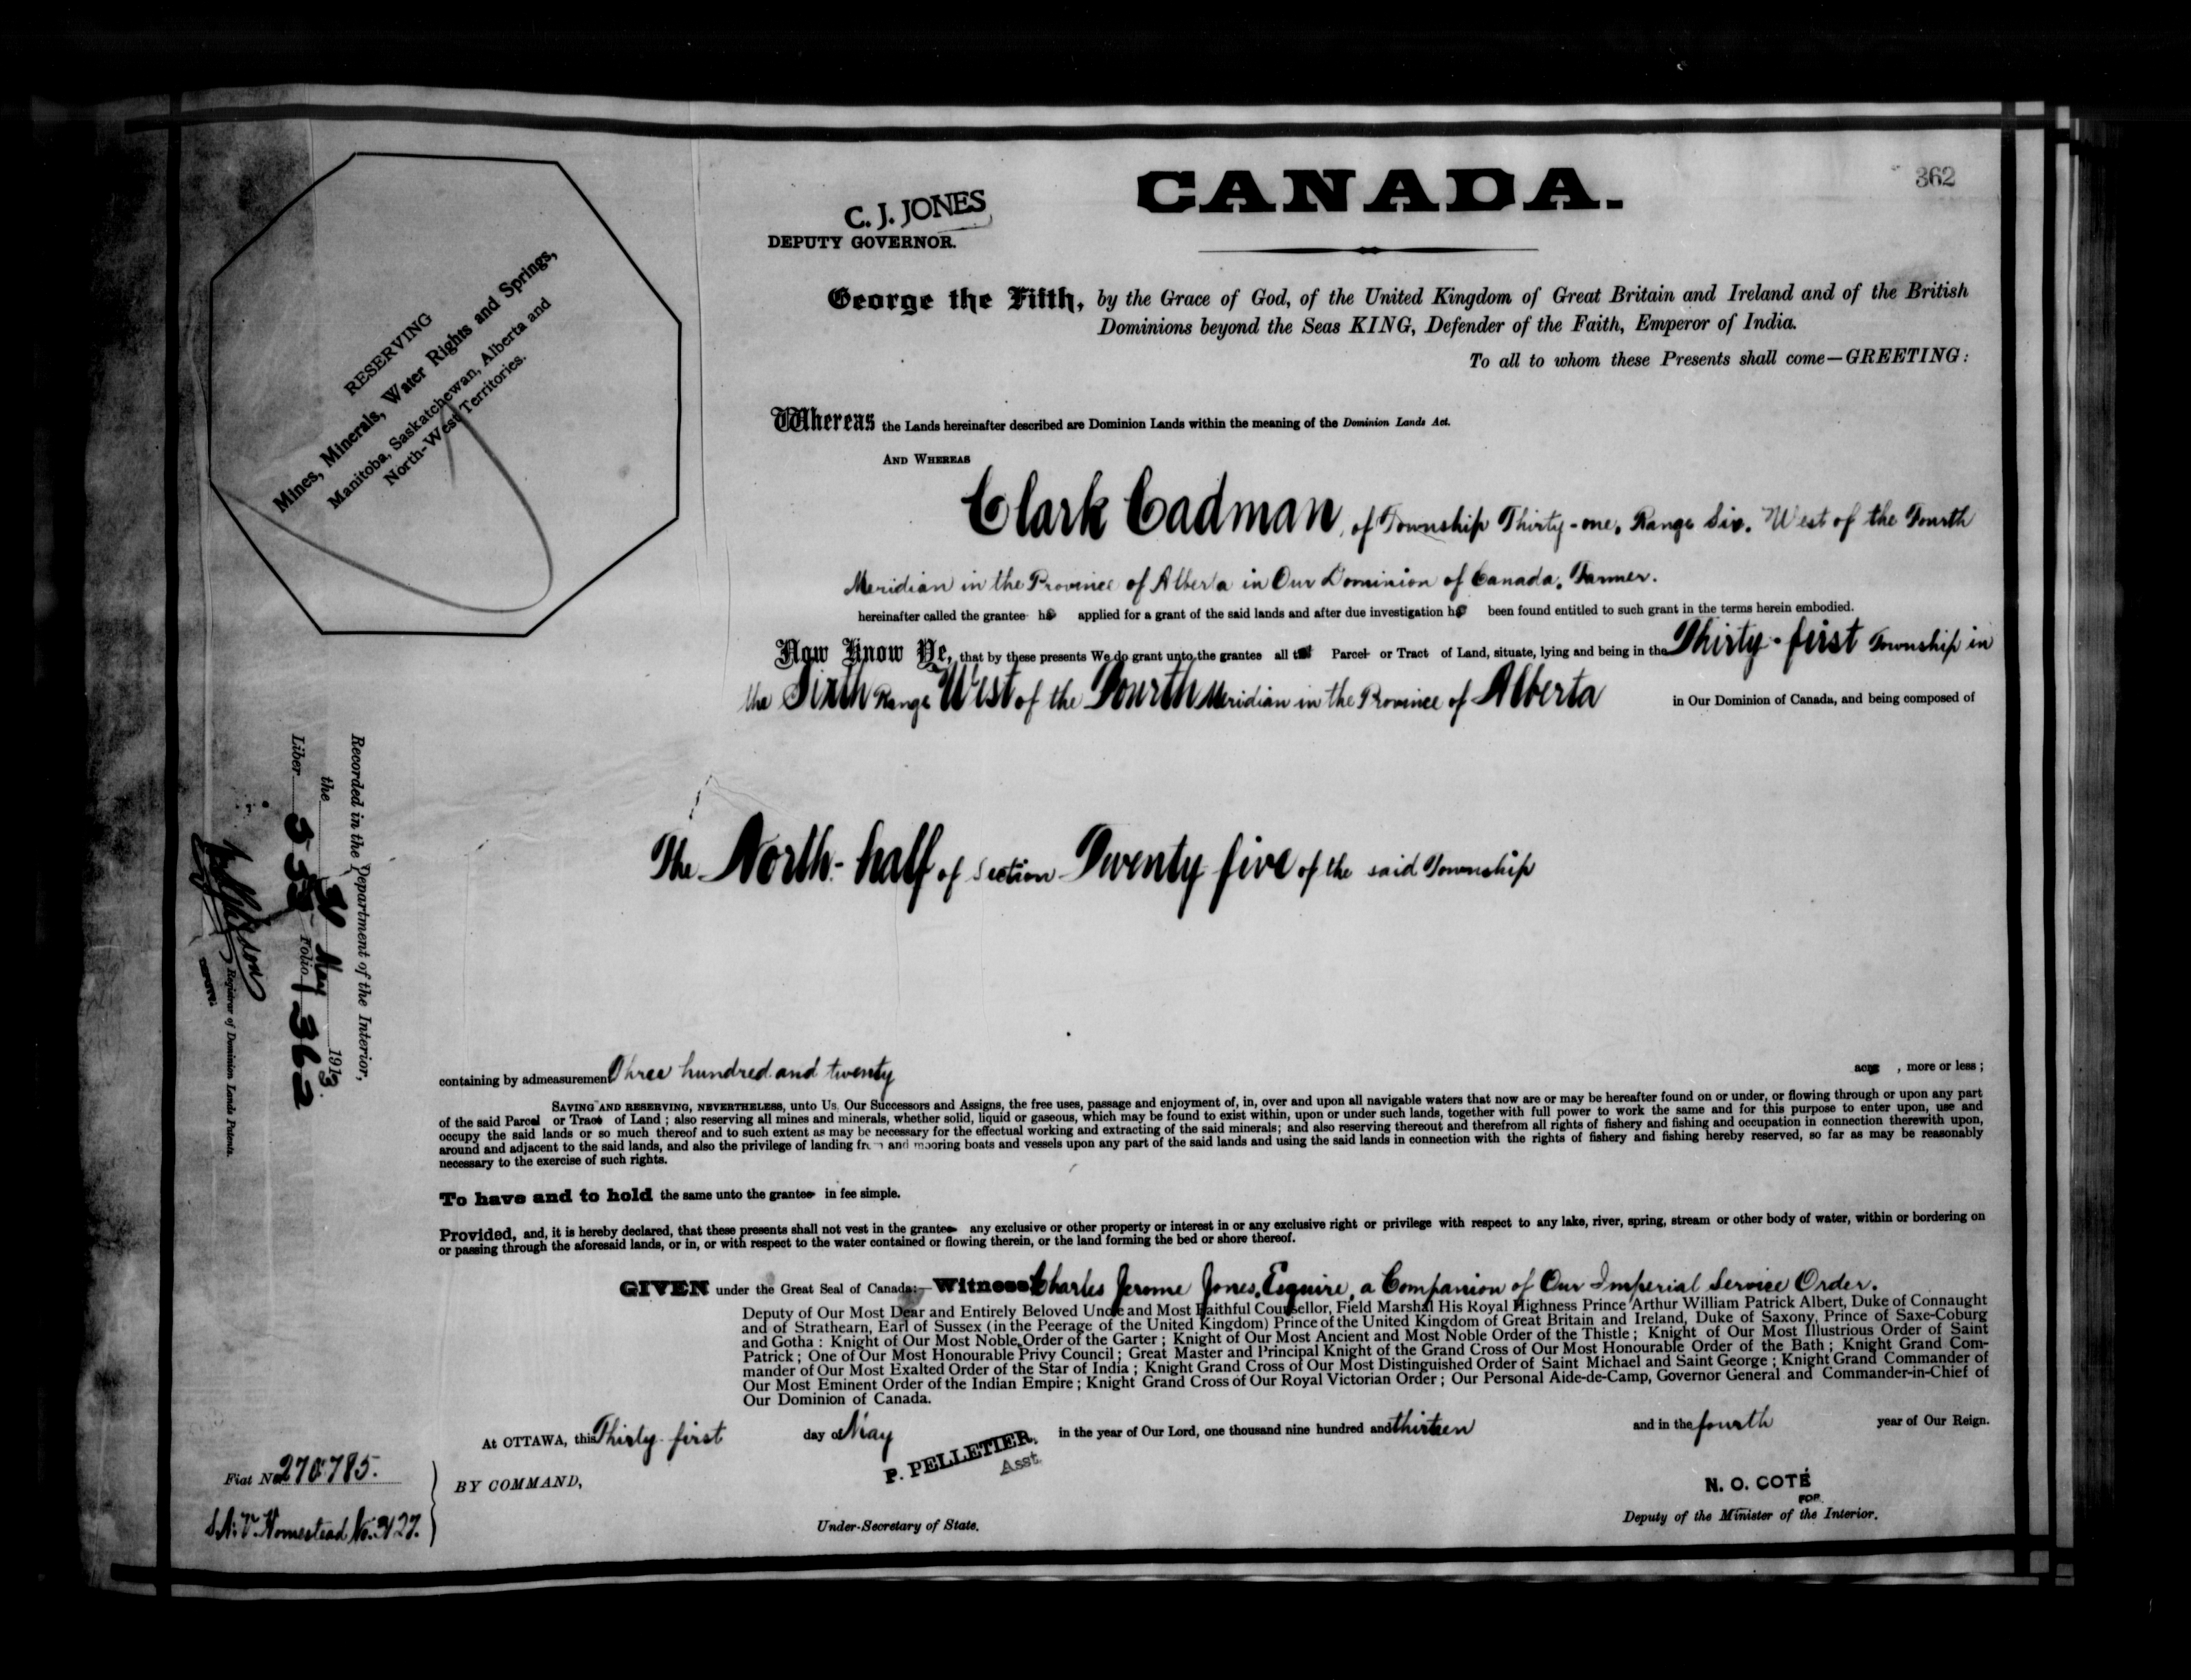 362
CANADA.
C. J. JONES
DEPUTY GOVERNOR.
RESERVING
Mines, Minerals, Water Rights and Springs,
Manitoba, Saskatchewan, Alberta and
North-West Territories.
George the Fifth, by the Grace of God, of the United Kingdom of Great Britain and Ireland and of the British
Dominions beyond the Seas KING, Defender of the Faith, Emperor of India.
To all to whom these Presents shall come—GREETING:
Whereas the Lands hereinafter described are Dominion Lands within the meaning of the Dominion Lands Act.
AND WHEREAS
Clark Cadman, of Township Thirty-one, Range Six, West of the Fourth
Meridian in the Province of Alberta in Our Dominion of Canada, Farmer.
hereinafter called the grantee has applied for a grant of the said lands and after due investigation has been found entitled to such grant in the terms herein embodied.
Now Know Ye, that by these presents We do grant unto the grantee all that Parcel or Tract of Land, situate, lying and being in the Thirty-first Township in
the Sixth Range West of the Fourth Meridian in the Province of Alberta in Our Dominion of Canada, and being composed of
The North-half of Section Twenty five of the said Township
Recorded in the Department of the Interior,
the 31 May 1913
Liber 555 Folio 362
Registrar of Dominion Lands Patents.
containing by admeasurement Three hundred and twenty acres, more or less;
SAVING AND RESERVING, NEVERTHELESS, unto Us, Our Successors and Assigns, the free uses, passage and enjoyment of, in, over and upon all navigable waters that now are or may be hereafter found on or under, or flowing through or upon any part
of the said Parcel or Tract of Land; also reserving all mines and minerals, whether solid, liquid or gaseous, which may be found to exist within, upon or under such lands, together with full power to work the same and for this purpose to enter upon, use and
occupy the said lands or so much thereof and to such extent as may be necessary for the effectual working and extracting of the said minerals; and also reserving thereout and therefrom all rights of fishery and fishing and occupation in connection therewith upon,
around and adjacent to the said lands, and also the privilege of landing from and mooring boats and vessels upon any part of the said lands and using the said lands in connection with the rights of fishery and fishing hereby reserved, so far as may be reasonably
necessary to the exercise of such rights.
To have and to hold the same unto the grantee in fee simple.
Provided, and, it is hereby declared, that these presents shall not vest in the grantee any exclusive or other property or interest in or any exclusive right or privilege with respect to any lake, river, spring, stream or other body of water, within or bordering on
or passing through the aforesaid lands, or in, or with respect to the water contained or flowing therein, or the land forming the bed or shore thereof.
GIVEN under the Great Seal of Canada:—Witness Charles Jerome Jones, Esquire, a Companion of Our Imperial Service Order.
Deputy of Our Most Dear and Entirely Beloved Uncle and Most Faithful Counsellor, Field Marshal His Royal Highness Prince Arthur William Patrick Albert, Duke of Connaught
and of Strathearn, Earl of Sussex (in the Peerage of the United Kingdom) Prince of the United Kingdom of Great Britain and Ireland, Duke of Saxony, Prince of Saxe-Coburg
and Gotha: Knight of Our Most Noble Order of the Garter; Knight of Our Most Ancient and Most Noble Order of the Thistle; Knight of Our Most Illustrious Order of Saint
Patrick; One of Our Most Honourable Privy Council; Great Master and Principal Knight of the Grand Cross of Our Most Honourable Order of the Bath; Knight Grand Com-
mander of Our Most Exalted Order of the Star of India; Knight Grand Cross of Our Most Distinguished Order of Saint Michael and Saint George; Knight Grand Commander of
Our Most Eminent Order of the Indian Empire; Knight Grand Cross of Our Royal Victorian Order; Our Personal Aide-de-Camp, Governor General and Commander-in-Chief of
Our Dominion of Canada.
At OTTAWA, this Thirty-first day of May in the year of Our Lord, one thousand nine hundred and thirteen and in the fourth year of Our Reign.
Fiat No. 270785.
BY COMMAND,
P. PELLETIER,
Asst.
Under-Secretary of State.
N. O. COTÉ
FOR
Deputy of the Minister of the Interior.
Homestead No.